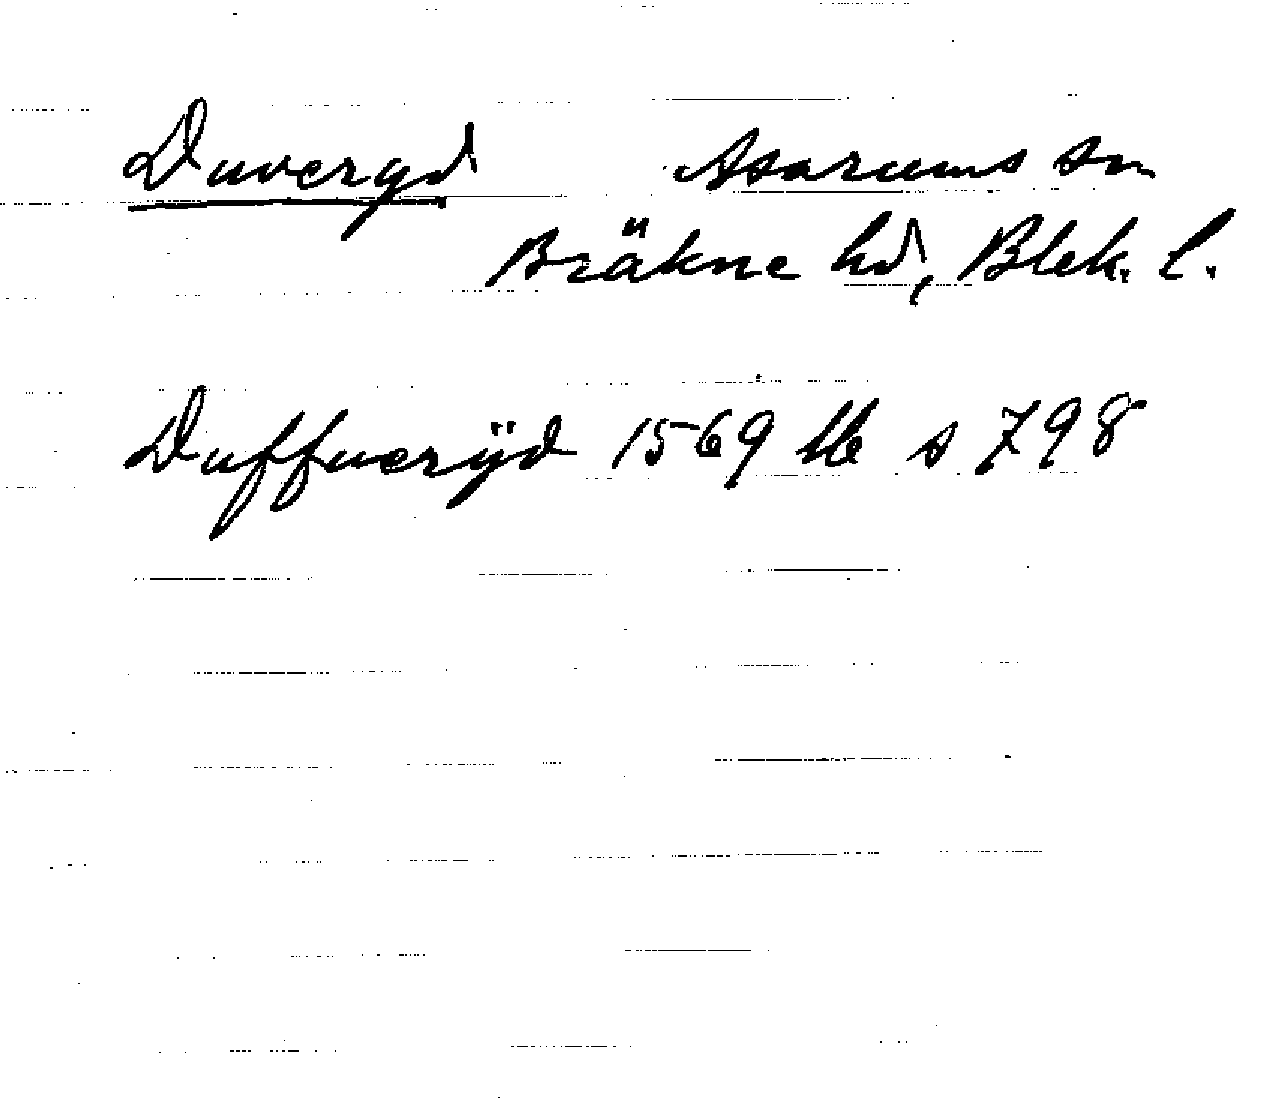 Duveryd Asarums sn
Bräkne hd, Blek. l.
Duffuerÿd 1569 lb s 798